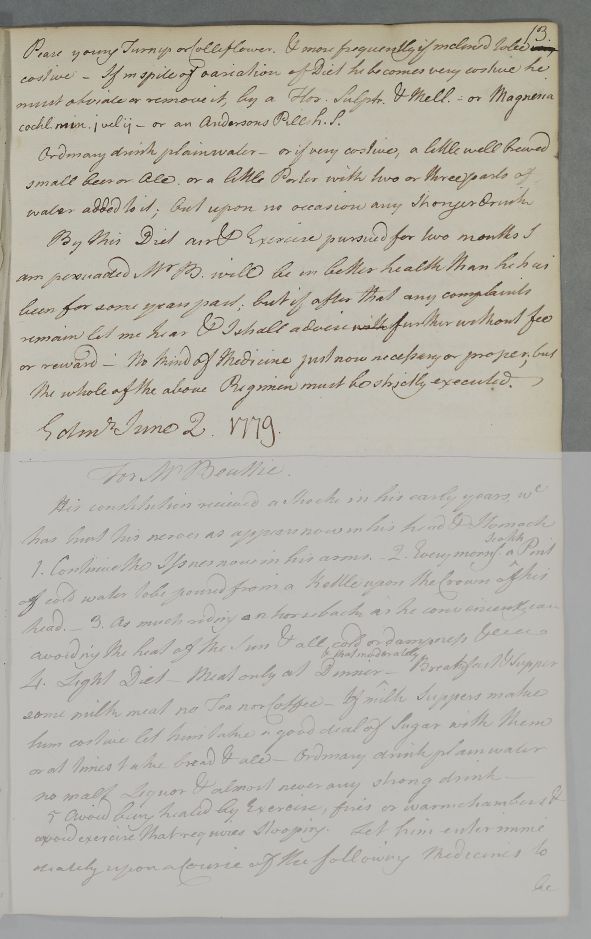 13.
Pease young Turnip or Colleflower. & more frequently if inclined to be
costive – If in spite of variation of Diet he becomes very costive he
must obviate or remove it, by a Flor. Sulph. & Mell. – or Magnesia
cochl. min. j vel ij – or an Andersons Pill h. S.
Ordinary drink plain water – or if very costive, a little well brewed
small beer or Ale. or a little Porter with two or three parts of
water added to it; but upon no occasion any Stronger drink
By this Diet air & Exercise pursued for two months I
am persuaded Mr B. will be in better health than he has
been for some years past; but if after that any complaints
remain let me hear & I shall advise further without fee
or reward – No kind of Medicine just now necessary or proper, but
the whole of the above Regimen must be strictly executed.
Edinr June 2. 1779.
For Mr
His constitution received a Shock in his early years, wc
has hurt his nerves as appears now in his head & Stomach
1. Continue the Issues now in his arms. – 2. Every morng a Pint
of cold water to be poured from a Kettle upon the Crown of his
head. – 3. As much riding on horseback as he conveniently can
avoiding the heat of the Sun & all cold or dampness
& that moderately
4. Light Diet – Meat only at Dinner – Breakfast & Supper
some milk meat no Tea nor Coffee – If milk Suppers make
him costive let him take a good deal of Sugar with them
or at times take bread & ale – Ordinary drink plain water
no malt Liquor & almost never any strong drink –
5 Avoid being heated by Exercise, fires or warm chambers &
avoid exercise that requires Stooping. Let him enter imme
diately upon a Course of the following Medicines to
be